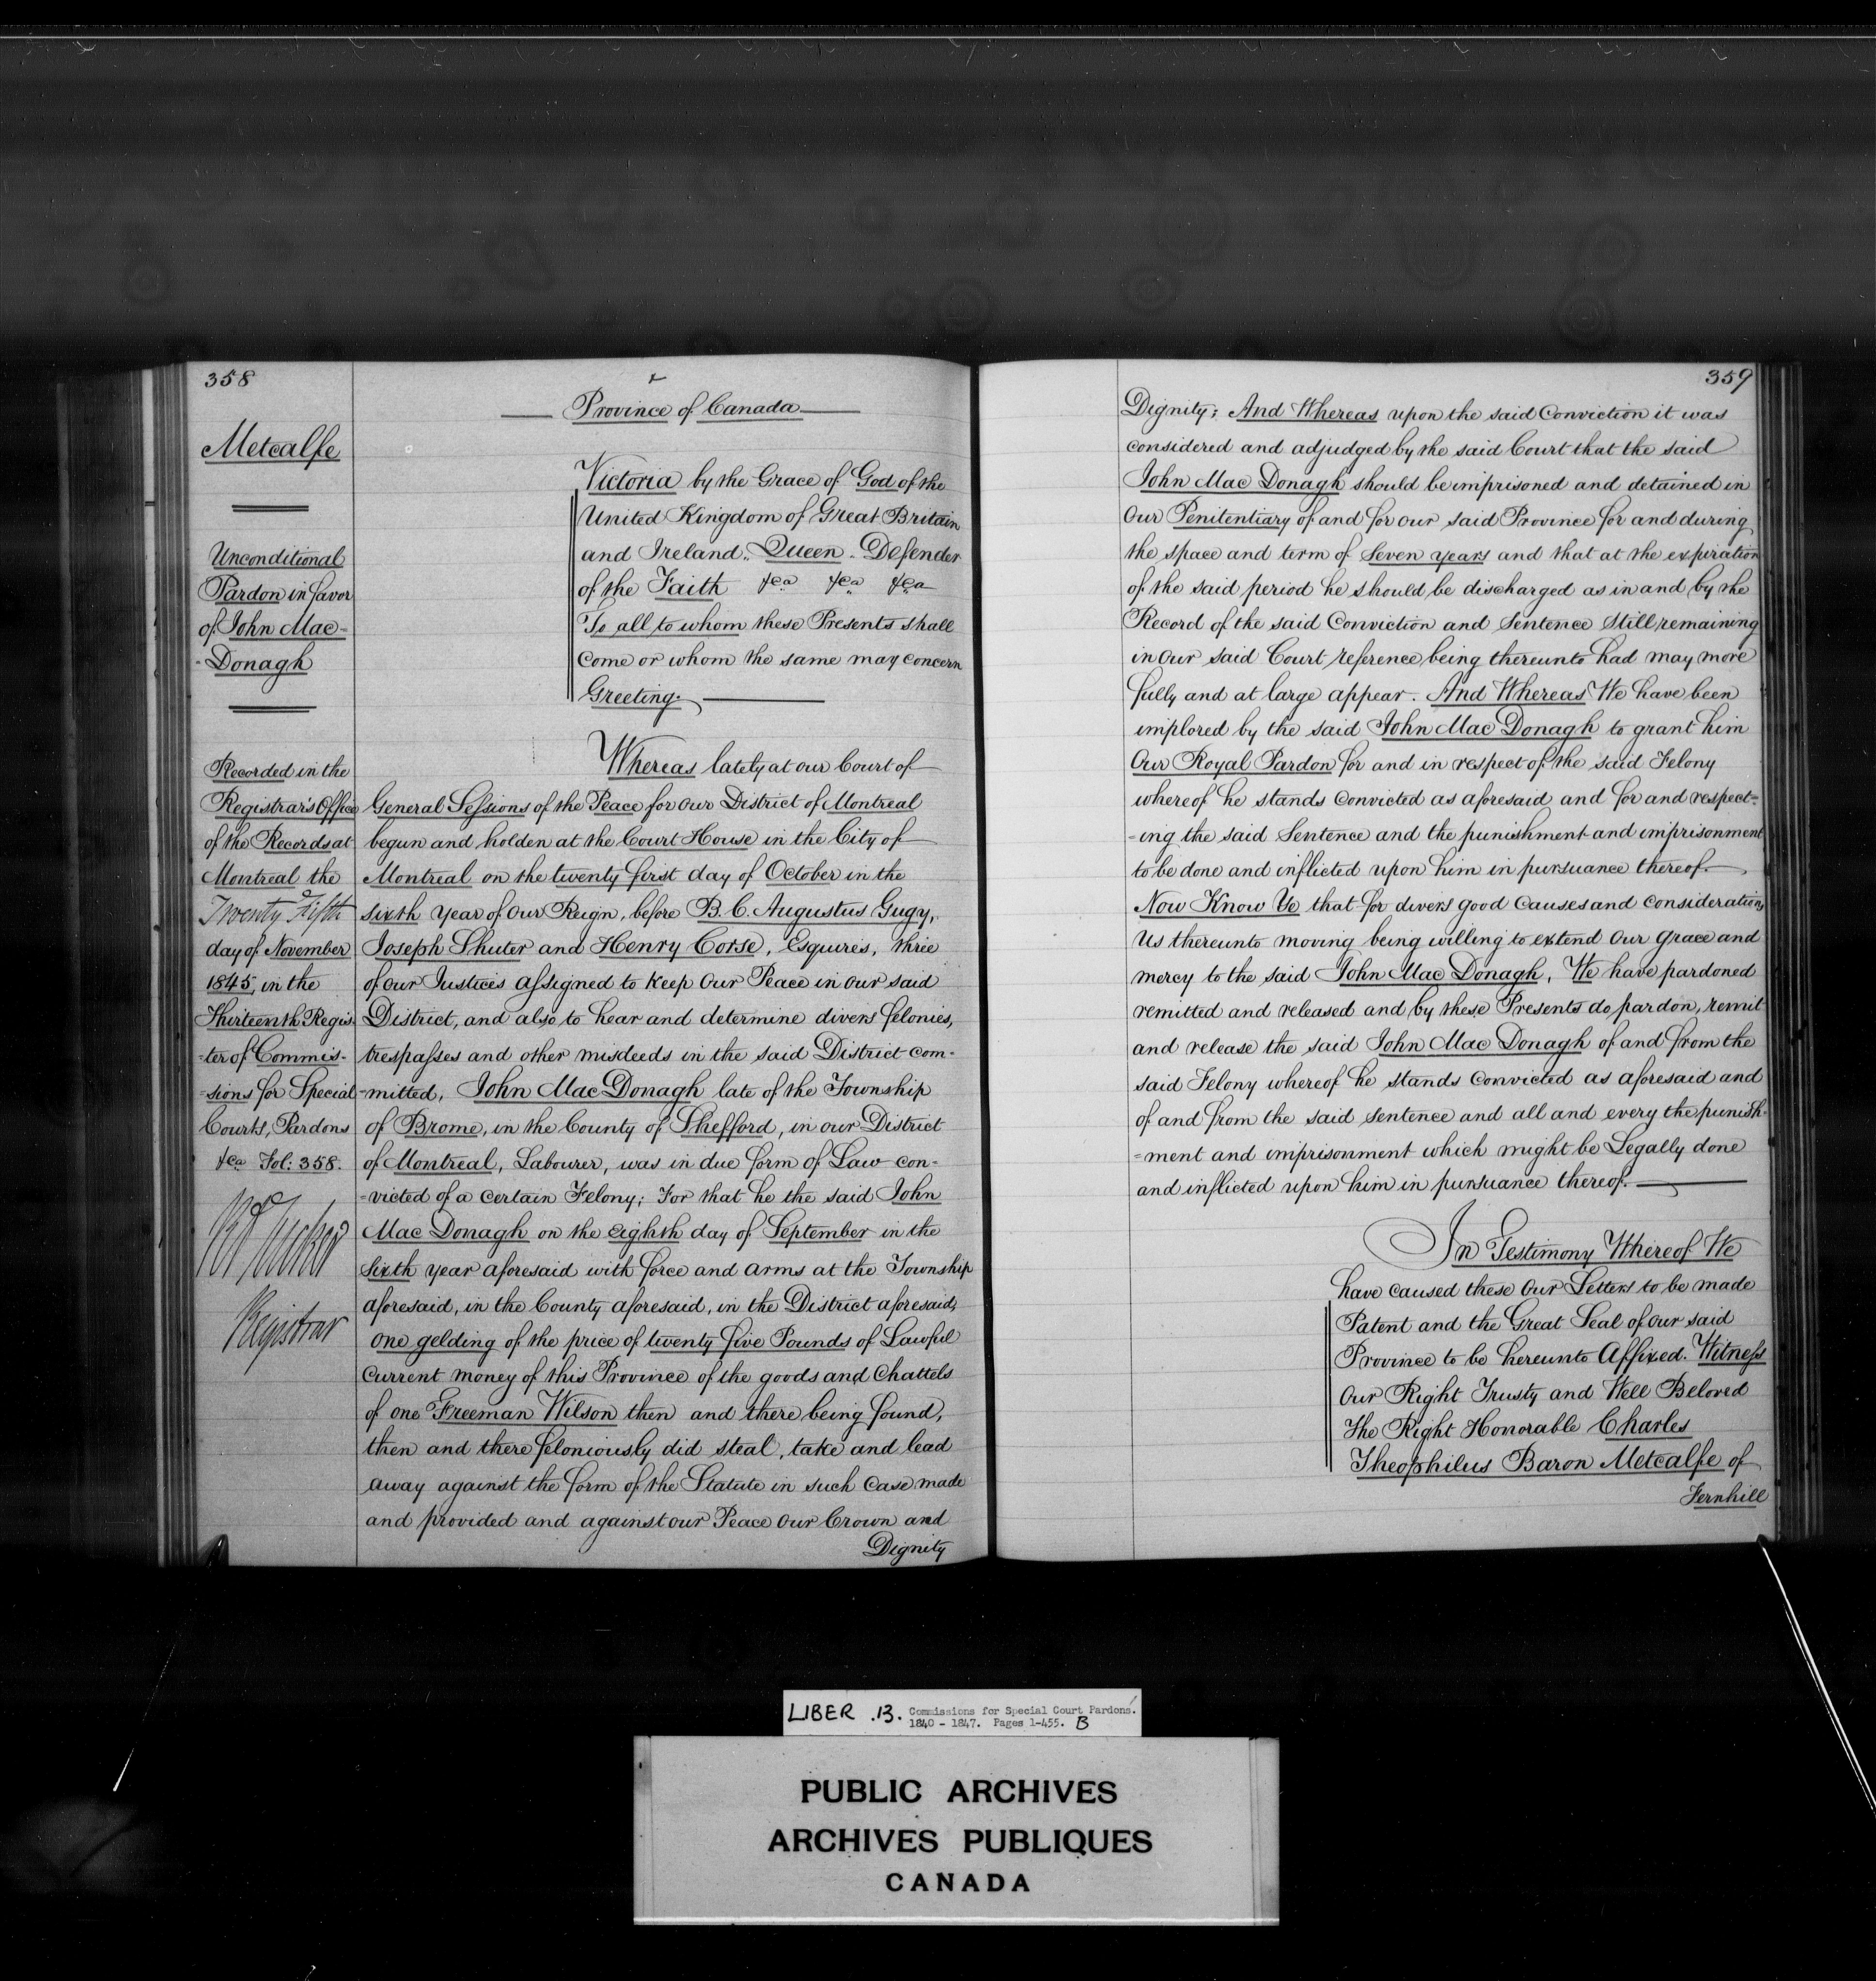 358
Metcalfe
Unconditional
Pardon in favor
of John Mac-
-Donagh
Recorded in the
Registrar's Office
of the Records at
Montreal the
Twenty Fifth
day of November
1845, in the
Thirteenth Regis-
-ter of Commis-
-sions for Special
Courts, Pardons
&ca Fol: 358.
Registrar
Province of Canada
Victoria by the Grace of God of the
United Kingdom of Great Britain
and Ireland, Queen, Defender
of the Faith &ca &ca &ca
To all to whom these Presents shall
come or whom the same may concern
Greeting.
Whereas lately at our Court of
General Sessions of the Peace for our District of Montreal
begun and holden at the Court House in the City of
Montreal on the twenty first day of October in the
sixth year of Our Reign, before B. C. Augustus Gugy,
Joseph Shuter and Henry Corse, Esquires, three
of our Justices assigned to keep Our Peace in our said
District, and also to hear and determine divers felonies,
trespasses and other misdeeds in the said District com-
-mitted, John Mac Donagh late of the Township
of Brome, in the County of Shefford, in our District
of Montreal, Labourer, was in due form of Law con-
-victed of a certain Felony; For that he the said John
Mac Donagh on the eighth day of September in the
sixth year aforesaid with force and arms at the Township
aforesaid, in the County aforesaid, in the District aforesaid,
one gelding of the price of twenty five Pounds of Lawful
current money of this Province of the goods and Chattels
of one Freeman Wilson then and there being found,
then and there feloniously did steal, take and lead
away against the form of the Statute in such case made
and provided and against our Peace Our Crown and
Dignity
359
Dignity; And Whereas upon the said Conviction it was
considered and adjudged by the said Court that the said
John Mac Donagh should be imprisoned and detained in
Our Penitentiary of and for our said Province for and during
the space and term of Seven years and that at the expiration
of the said period he should be discharged as in and by the
Record of the said Conviction and Sentence Still remaining
in Our said Court reference being thereunto had may more
fully and at large appear. And Whereas We have been
implored by the said John Mac Donagh to grant him
Our Royal Pardon for and in respect of the said Felony
whereof he stands Convicted as aforesaid and for and respect-
-ing the said Sentence and the punishment and imprisonment
to be done and inflicted upon him in pursuance thereof.
Now Know Ye that for divers good Causes and Considerations
Us thereunto moving being willing to extend Our grace and
mercy to the said John Mac Donagh, We have pardoned
remitted and released and by these Presents do pardon, remit
and release the said John Mac Donagh of and from the
said Felony whereof he stands convicted as aforesaid and
of and from the said sentence and all and every the punish-
-ment and imprisonment which might be Legally done
and inflicted upon him in pursuance thereof.
In Testimony Whereof We
have caused these Our Letters to be made
Patent and the Great Seal of our said
Province to be hereunto Affixed. Witness
Our Right Trusty and Well Beloved
The Right Honorable Charles
Theophilus Baron Metcalfe of
Fernhill
LIBER .13. Commissions for Special Court Pardons.
1840 - 1847. Pages 1-455. B
PUBLIC ARCHIVES
ARCHIVES PUBLIQUES
CANADA